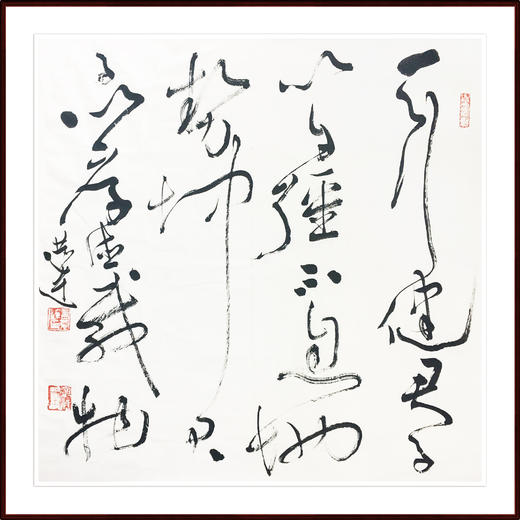 天行健君子
以自彊不息地
勢坤君
子以厚德載物